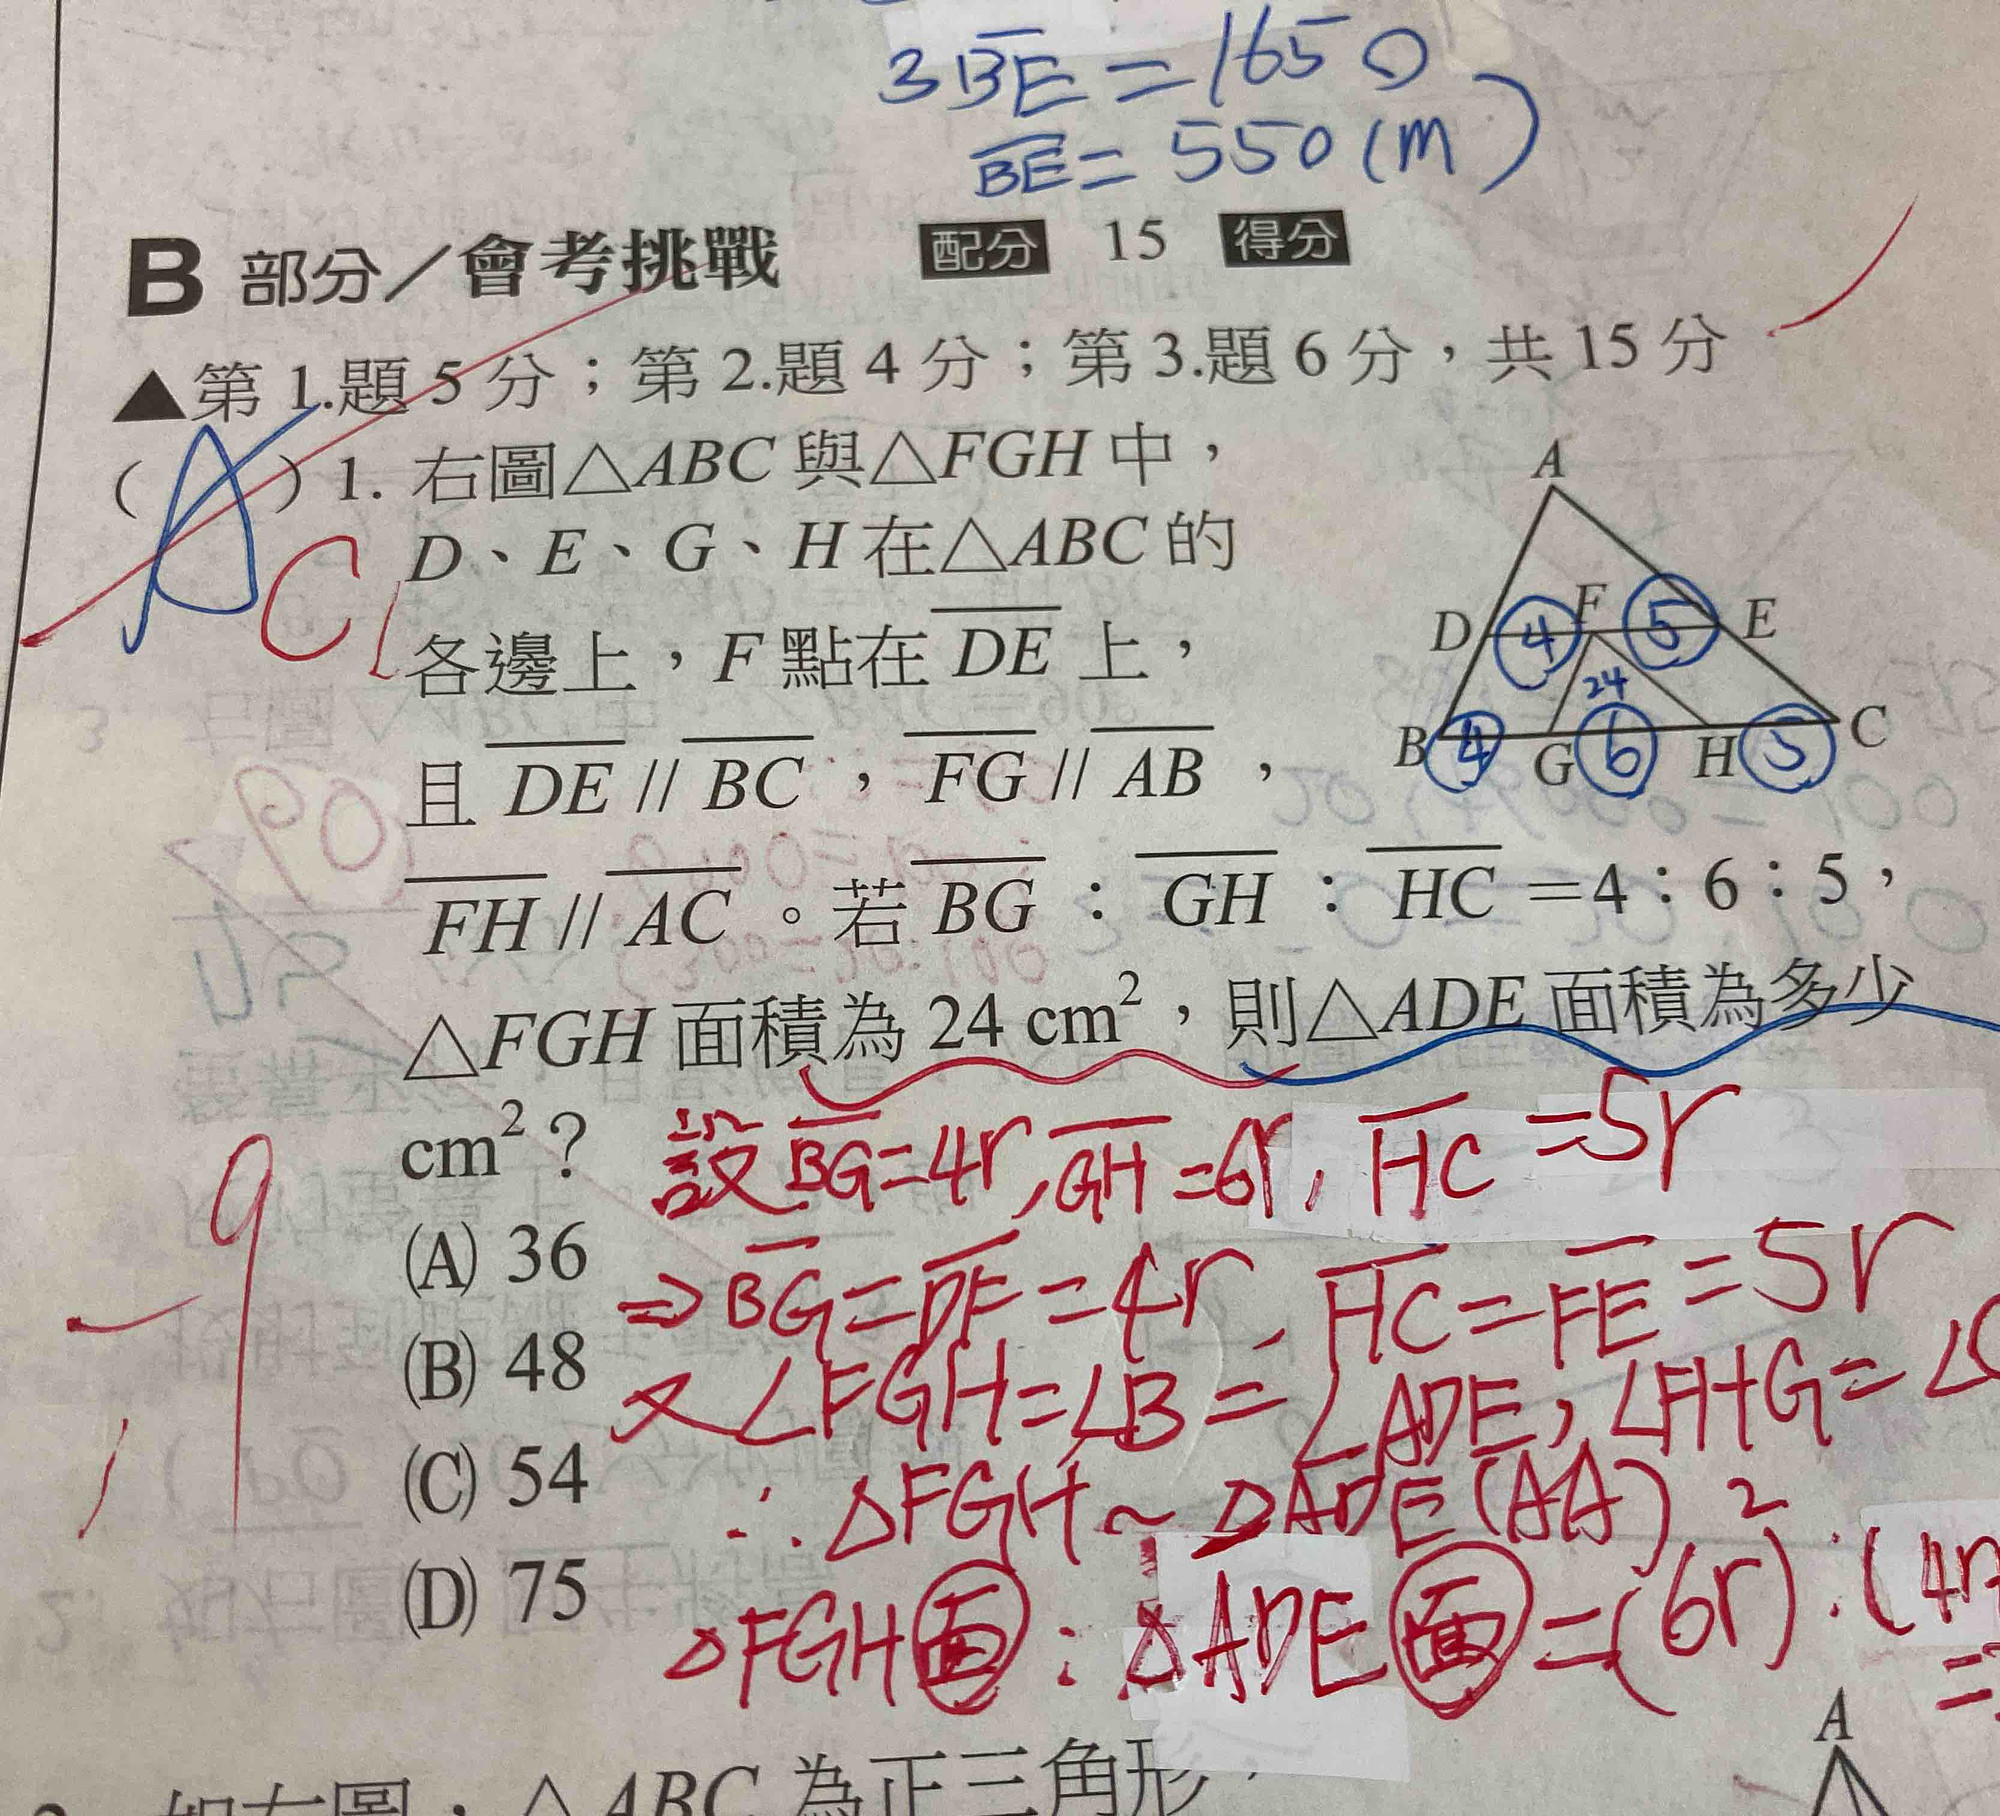 3BE = 1650
BE = 550 (m)
B 部分／會考挑戰 配分 15 得分
▲第 1.題 5 分；第 2.題 4 分；第 3.題 6 分，共 15 分
( A ) 1. 右圖△ABC 與△FGH 中，
C
D、E、G、H 在△ABC 的
各邊上，F 點在 DE 上，
且 DE // BC，FG // AB，
FH // AC。若 BG：GH：HC＝4：6：5，
△FGH 面積為 24 cm²，則△ADE 面積為多少
cm²？
A
D 4 F 5 E
24
B 4 G 6 H 5 C
設 BG=4r, GH=6r, HC=5r
(A) 36
⇒BG=DF=4r, HC=FE=5r
(B) 48
又∠FGH=∠B=∠ADE, ∠FHG=∠
(C) 54
∴△FGH~△ADE(AA)
(D) 75
△FGH面:△ADE面=(6r)²:(4r
=
-9
A
如右圖，△ABC 為正三角形，